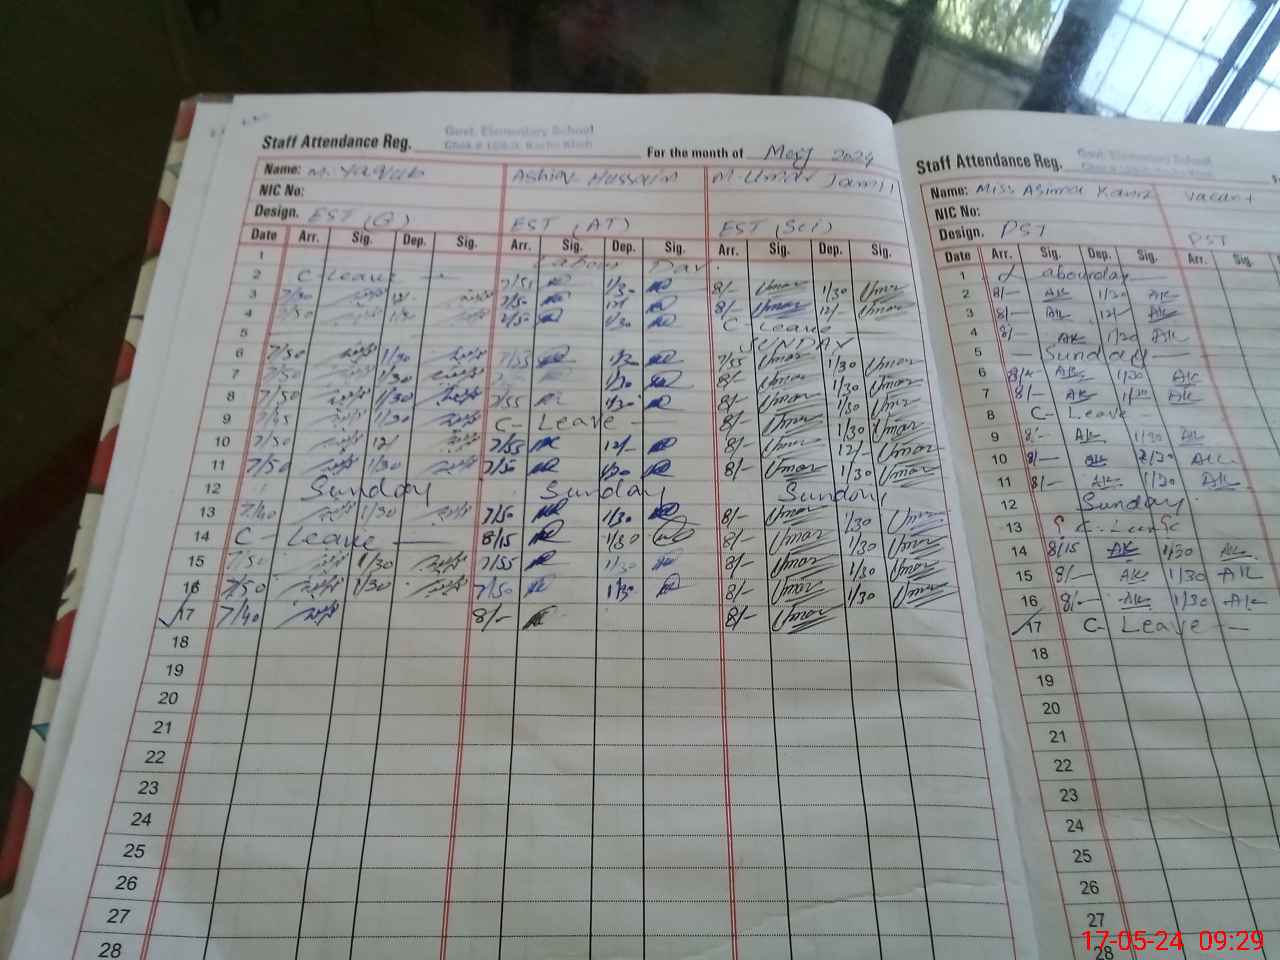 Staff Attendance Reg. Govt. Elementary School For the month of May 2024
Name: M. Yaqub Ashiq Hussain M. Umar Jamil
NIC No:
Design. EST (G) EST (AT) EST (Sci)
Date Arr. Sig. Dep. Sig. Arr. Sig. Dep. Sig. Arr. Sig. Dep. Sig.
1 Labour Day.
2 C-Leave 7/51 1/30 8/- Umar 1/30 Umar
3 7/50 12/- 7/50 12/- 8/- Umar 12/- Umar
4 7/50 7/50 1/30 C-Leave
5 SUNDAY
6 7/50 1/30 7/55 7/55 Umar 1/30 Umar
7 7/50 1/30 1/30 8/- Umar 1/30 Umar
8 7/50 1/30 7/55 1/30 8/- Umar 1/30 Umar
9 7/45 1/30 C-Leave 8/- Umar 1/30 Umar
10 7/50 12/ 7/55 12/- 8/- Umar 12/- Umar
11 7/50 1/30 7/50 1/30 8/- Umar 1/30 Umar
12 Sunday Sunday Sunday
13 7/40 1/30 7/50 1/30 8/- Umar 1/30 Umar
14 C-Leave 8/15 1/30 8/- Umar 1/30 Umar
15 7/50 1/30 7/55 1/30 8/- Umar 1/30 Umar
16 7/50 1/30 7/50 1/30 8/- Umar 1/30 Umar
17 7/40 8/- 8/- Umar
18
19
20
21
22
23
24
25
26
27
28
Staff Attendance Reg. Govt. Elementary School
Name: Miss Asima vacant
NIC No:
Design. PST PST
Date Arr. Sig. Dep. Sig. Arr. Sig.
1 Labourday
2 8/- AK 1/30 AK
3 8/- AK 12/- AK
4 8/- AK 1/30 AK
5 Sunday
6 8/- AK 1/30 AK
7 8/- AK 1/30 AK
8 C- Leave
9 8/- AK 1/30 AK
10 8/- AK AK
11 8/- AK 1/30 AK
12 Sunday
13 C-Leave
14 8/15 AK 1/30 AK
15 8/- AK 1/30 AK
16 8/- AK 1/30 AK
17 C- Leave
18
19
20
21
22
23
24
25
26
27
28
17-05-24 09:29